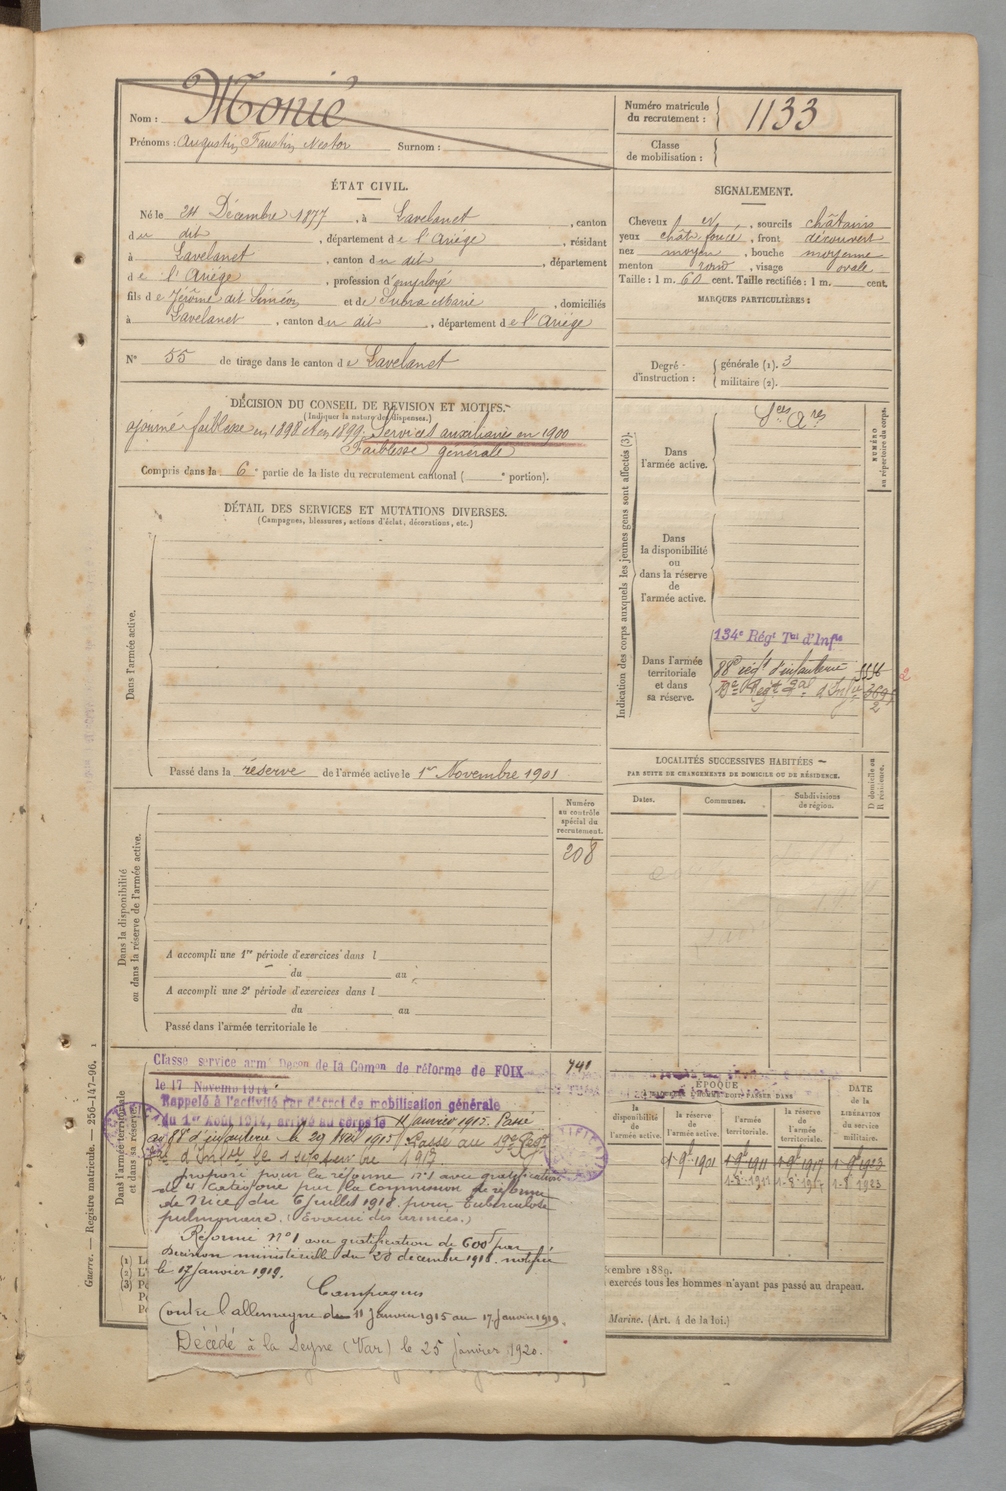 Nom : Monié
Prénoms : Augustin, Faustin, Nestor Surnom :
Numéro matricule du recrutement : 1133
Classe de mobilisation :
ÉTAT CIVIL.
Né le 24 Décembre 1877, à Lavelanet, canton
du dit, département de l'Ariége, résidant
à Lavelanet, canton du dit, département
de l'Ariége, profession d'employé
fils de Jérôme dit Siméon et de Subra Marie, domiciliés
à Lavelanet, canton du dit, département de l'Ariége
N° 55 de tirage dans le canton de Lavelanet
SIGNALEMENT.
Cheveux N, sourcils châtains
yeux chât. foncé, front découvert
nez moyen, bouche moyenne
menton rond, visage ovale
Taille : 1 m. 60 cent. Taille rectifiée : 1 m. cent.
MARQUES PARTICULIÈRES :
Degré d'instruction : générale (1). 3
militaire (2).
DÉCISION DU CONSEIL DE RÉVISION ET MOTIFS.
(Indiquer la nature des dispenses.)
ajourné faiblesse en 1898 et en 1899. Services auxiliaires en 1900
Faiblesse générale
Compris dans la 6e partie de la liste du recrutement cantonal ( e portion).
DÉTAIL DES SERVICES ET MUTATIONS DIVERSES.
(Campagnes, blessures, actions d'éclat, décorations, etc.)
Dans l'armée active.
Passé dans la réserve de l'armée active le 1er Novembre 1901
Indication des corps auxquels les jeunes gens sont affectés (3).
NUMÉRO au répertoire du corps.
Dans l'armée active.
Ses Ares
Dans la disponibilité ou dans la réserve de l'armée active.
Dans l'armée territoriale et dans sa réserve.
134e Régt Tal d'Infie
88e régt d'infanterie
LOCALITÉS SUCCESSIVES HABITÉES
PAR SUITE DE CHANGEMENTS DE DOMICILE OU DE RÉSIDENCE.
Dates. Communes. Subdivisions de région. D domicile ou R résidence.
Dans la disponibilité ou dans la réserve de l'armée active.
Numéro au contrôle spécial du recrutement.
208
A accompli une 1re période d'exercices dans l
du au
A accompli une 2e période d'exercices dans l
du au
Passé dans l'armée territoriale le
Dans l'armée territoriale et dans sa réserve
Classé service armé Decon de la Comon de réforme de FOIX
le 17 Novembre 1914
Rappelé à l'activité par décret de mobilisation générale
du 1er Août 1914, arrivé au corps le 11 janvier 1915. Passé
au 88e d'infanterie le 29 Mai 1915. Passé au 19e Régt
d'Infie le 1 septembre 1917.
proposé pour la réforme n°1 avec gratification
de 4e catégorie par la commission de réforme
de Nice du 6 juillet 1918 pour tuberculose
pulmonaire. (Evacué des armées.)
Réformé n°1 avec gratification de 600f par
décision ministérielle du 20 décembre 1918. notifiée
le 17 janvier 1919.
Campagnes
Contre l'allemagne du 11 Janvier 1915 au 17 janvier 1919.
Décédé à la Seyne (Var) le 25 janvier 1920.
741
ÉPOQUE
À LAQUELLE L'HOMME DOIT PASSER DANS
la disponibilité de l'armée active. la réserve de l'armée active. l'armée territoriale. la réserve de l'armée territoriale.
DATE DE LA LIBÉRATION du service militaire.
1-9bre 1901 1-9bre 1911 1-9bre 1917 1-9bre 1923
1-8-1911 1-8-1917 1-8-1923
décembre 1889.
exercés tous les hommes n'ayant pas passé au drapeau.
Marine. (Art. 4 de la loi.)
Guerre. — Registre matricule. — 256-147-96.